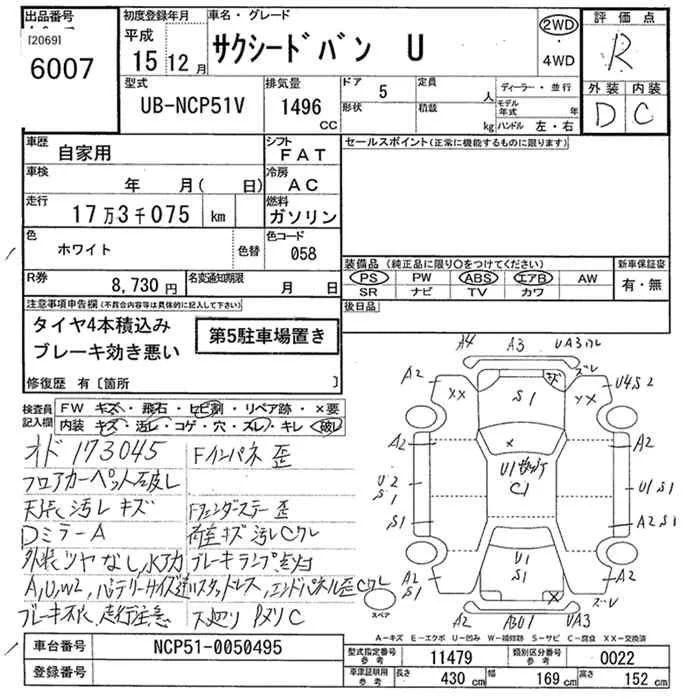 出品番号
[2069]
6007
初度登録年月
平成
15 12 月
車名・グレード
サクシードバン U
2WD
・
4WD
評価点
R
外装 内装
D C
型式
UB-NCP51V
排気量
1496
CC
ドア 5
形状
定員 人
積載 kg
ディーラー・並行
モデル年式 年
ハンドル 左・右
車歴
自家用
シフト
FAT
車検
年 月( 日)
冷房
AC
走行
17万3千075 km
燃料
ガソリン
色
ホワイト
色替
色コード
058
R券
8,730 円
名変通知期限
月 日
セールスポイント(正常に機能するものに限ります)
装備品(純正品に限り〇をつけてください)
PS PW ABS エアB AW
SR ナビ TV カワ
新車保証書
有・無
後日品
注意事項申告欄(不具合内容等は具体的に記入して下さい)
タイヤ4本積込み
ブレーキ効き悪い
第5駐車場置き
修復歴 有〔箇所 〕
検査員
記入欄
FW キズ・飛石・ヒビ割・リペア跡・×要
内装 キズ・汚レ・コゲ・穴・ズレ・キレ・破レ
オド 173045
Fインパネ 歪
フロアカーペット破レ
天張汚レ キズ
Fフェンダーステー歪
DミラーA
荷室キズ汚レCワレ
外装ツヤなし,水アカ
ブレーキランプ点灯
A,U,W2,バテリーサイズ違
スタットレス,エンドパネル歪Cワレ
走行注意
下廻リ PメリC
A4 A3 UA3ワレ
A2 XX S1 キズ XX ズレ U4S2
A2 × A2
U2 S1 U1 C1 U1S1
S1 A2S1
A2 S1 U1 S1 × A2
ズレ
A2 ABU1 UA3
スペア
A-キズ E-エクボ U-凹み W-補修跡 S-サビ C-腐食 XX-交換済
車台番号
NCP51-0050495
登録番号
型式指定番号 参考 11479
類別区分番号 参考 0022
車庫証明用 参考 長さ 430 cm 幅 169 cm 高さ 152 cm